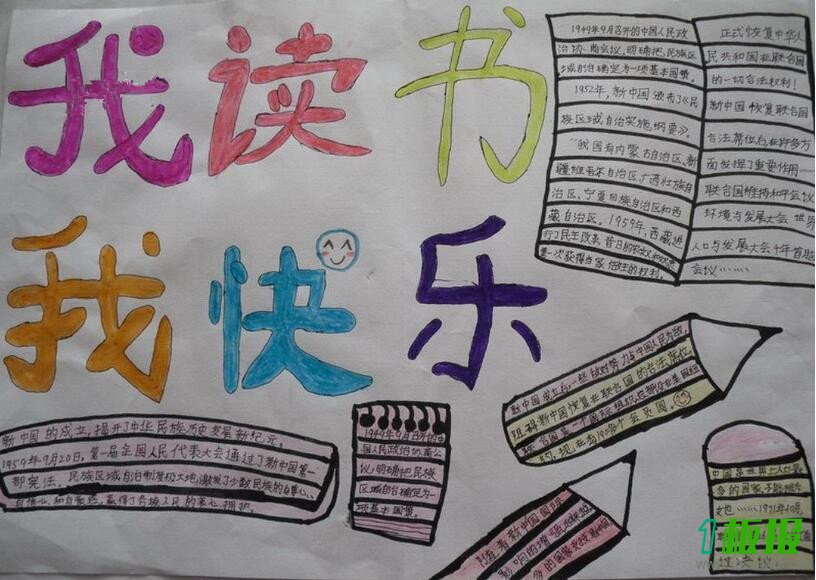 我读书
我快乐
1949年9月召开的中国人民政
治协商会议，明确把民族区
域自治确定为一项基本国策。
1952年，新中国颁布了《民
族区域自治实施纲要》。
"我国有内蒙古自治区、新
疆维吾尔自治区广西壮族自
治区、宁夏回族自治区和西
藏自治区。1959年，西藏进
行了民主改革，昔日的农奴
第一次获得当家作主的权利。
正式恢复中华人
民共和国在联合国
的一切合法权利！
新中国恢复联合国
合法席位后在许多方
面发挥了重要作用……
联合国维持和平会议
环境与发展大会 世界
人口与发展大会千年首脑
会议………
新中国成立后，一些敌对势力与中国人民为敌，
阻碍新中国恢复在联合国的合法席位，
联合国是一个国际组织，总部设在美国纽
约，现在共190多个会员国。
新中国的成立，揭开了中华民族历史发展新纪元。
1954年9月20日，第一届全国人民代表大会通过了新中国第一
部宪法。民族区域自治制度极大地激发了少数民族的自尊心、
自信心、和自豪感，赢得了各族人民的衷心拥护。
1949年9月召开的中
国人民政治协商会
议，明确把民族
区域自治确定为一
项基本国策。
随着新中国国际
影响的增强，
的国家支持新中国
中国是世界上人口最
多的国家，
……1971年10月，
1板报